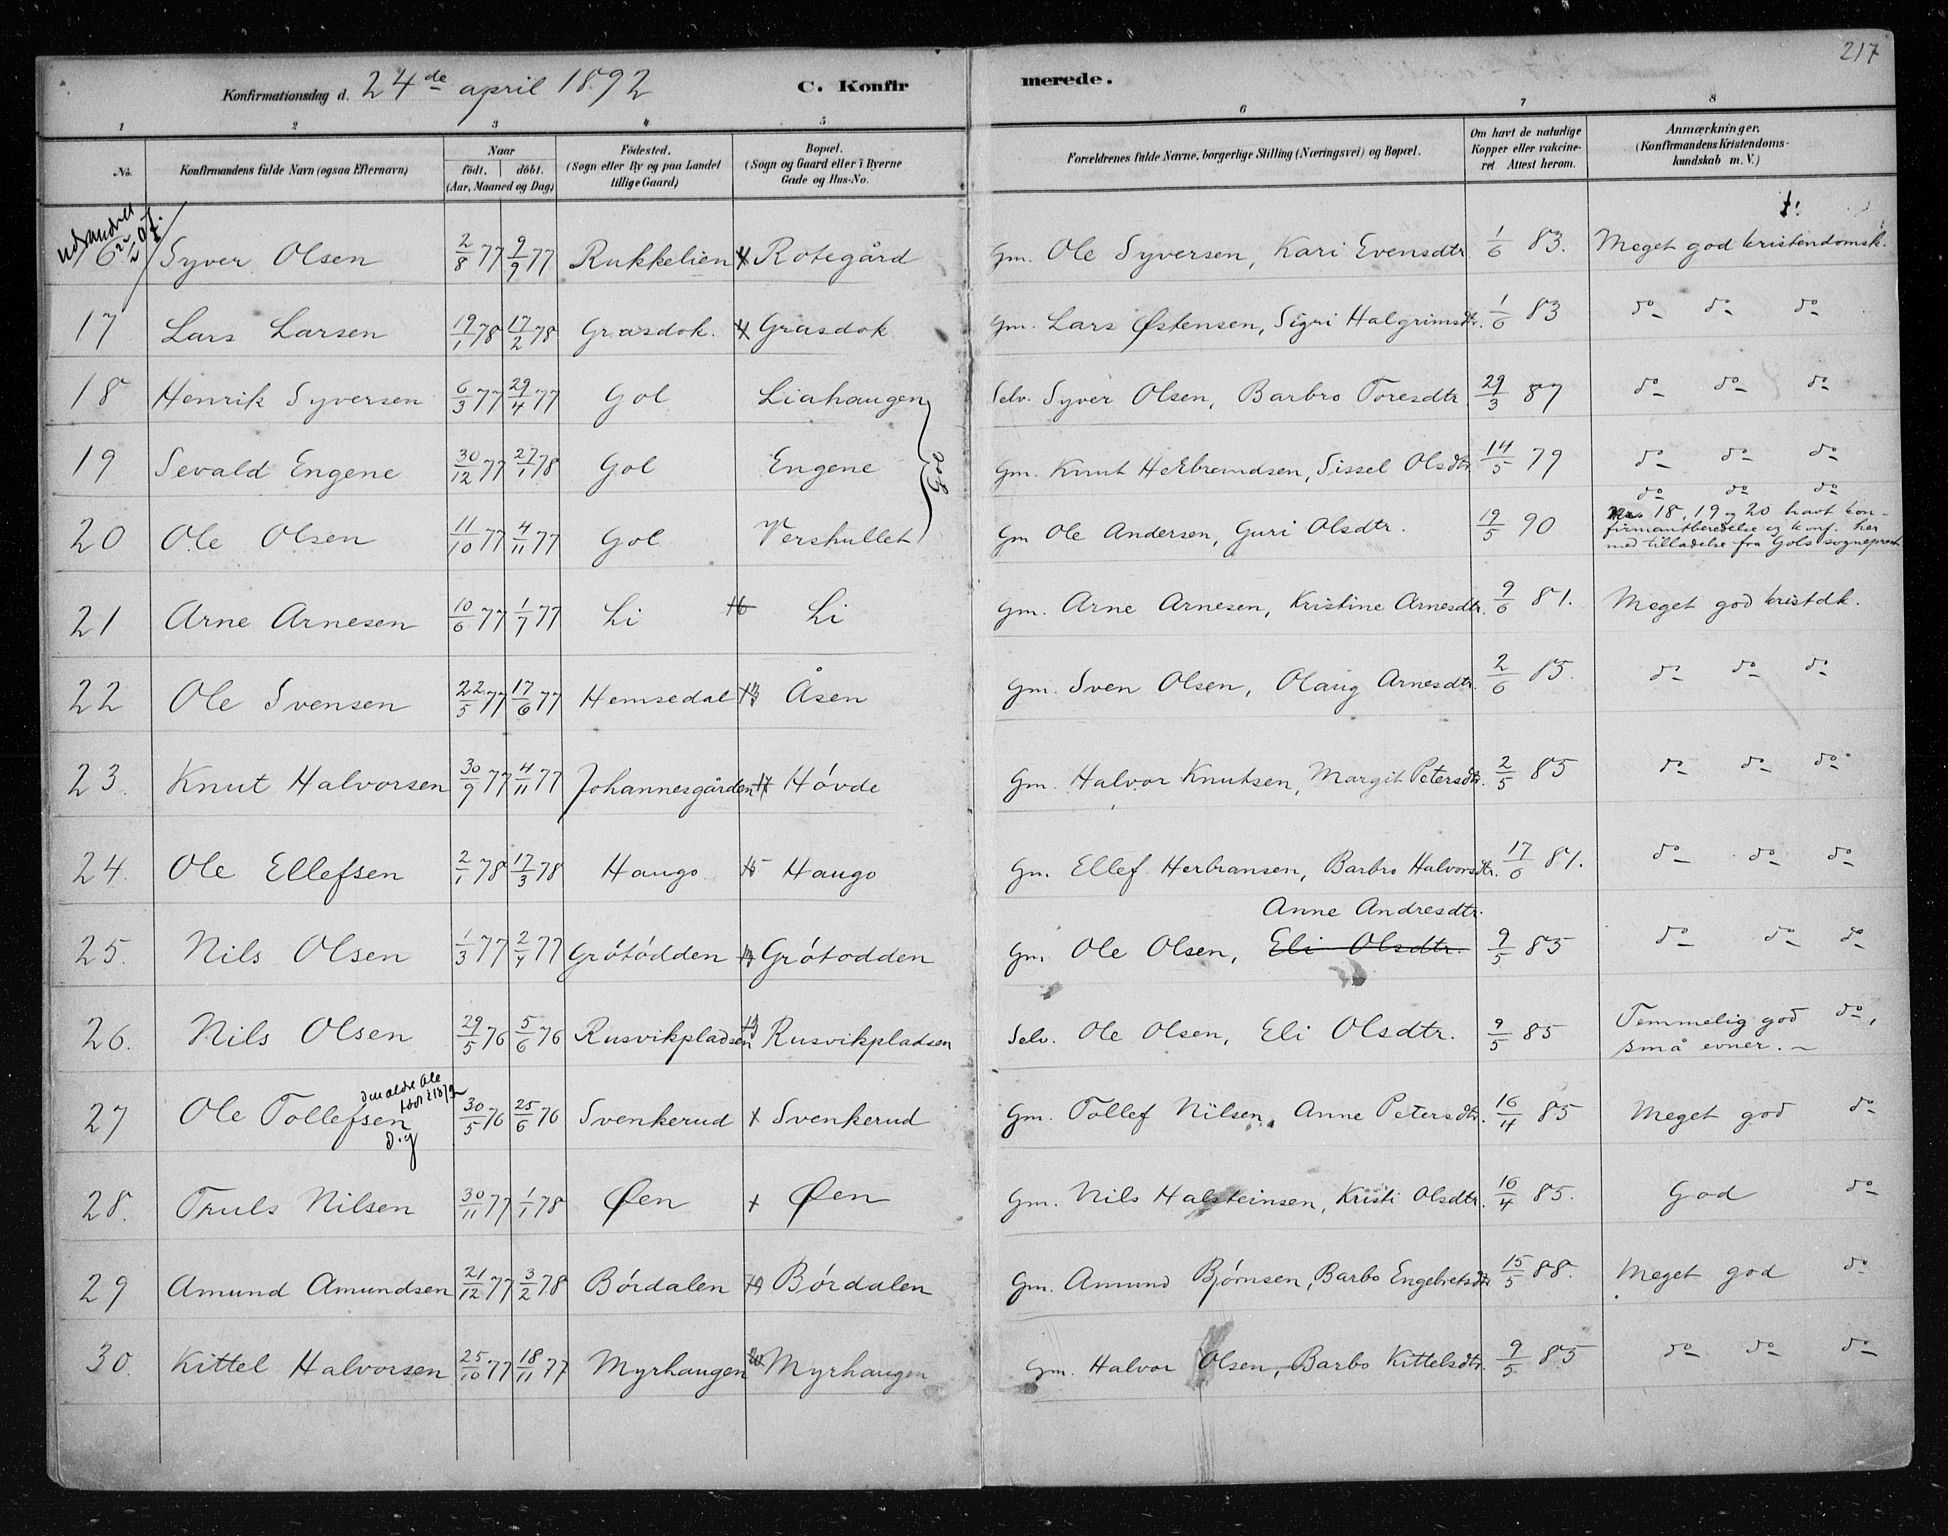 217
Konfirmationsdag d. 24de april 1892 C. Konfirmerede.
1 2 3 4 5 6 7 8
No. Konfirmandens fulde Navn (ogsaa Efternavn) Naar födt. döbt. (Aar, Maaned og Dag) Födested. (Sogn eller By og paa Landet tillige Gaard) Bopæl. (Sogn og Gaard eller i Byerne Gade og Hus-No. Forældrenes fulde Navne, borgerlige Stilling (Næringsvei) og Bopæl. Om havt de naturlige Kopper eller vakcineret. Attest herom. Anmærkninger. (Konfirmandens Kristendomskundskab m. V.)
udvandret 22/5 07.
16 Syver Olsen 2/8 77 9/9 77 Rukkelien Rotegård Gm. Ole Syversen, Kari Evensdtr. 1/6 83. Meget god kristendomsk.
17 Lars Larsen 19/1 78 17/2 78 Grasdok. Grasdok Gm. Lars Østensen, Sigri Halgrimsdtr. 1/6 83 do do do
18 Henrik Syversen 6/3 77 29/4 77 Gol Liahaugen Selv. Syver Olsen, Barbro Toresdtr. 29/3 87 do do do
19 Sevald Engene 30/12 77 27/1 78 Gol Engene Gm. Knut Herbrandsen, Sissel Olsdtr. 14/5 79 do do do
Gol
20 Ole Olsen 11/10 77 4/11 77 Gol Vershullet Gm Ole Andersen, Guri Olsdtr. 19/5 90 do do do
Nr. 18, 19 og 20 havt kon-
firmantberedelse og konf. her
med tilladelse fra Gols sogneprest
21 Arne Arnesen 10/6 77 1/7 77 Li Li Gm. Arne Arnesen, Kristine Arnesdtr. 9/6 81. Meget god kristdk.
22 Ole Svensen 22/5 77 17/6 77 Hemsedal Åsen Gm. Sven Olsen, Olaug Arnesdtr. 2/6 85. do do do
23. Knut Halvorsen 30/9 77 4/11 77 Johannesgården Hóvde Gm. Halvor Knutsen, Margit Petersdtr. 2/5 85 do do do
24. Ole Ellefsen 2/1 78 17/3 78 Haugo Haugo Gm. Ellef Herbransen, Barbro Halvorsdtr. 17/6 81. do do do
Anne Andresdtr.
25. Nils Olsen 1/3 77 2/4 77 Grótódden Grótodden Gm. Ole Olsen, Eli Olsdtr. 9/5 85 do do do
26. Nils Olsen 29/5 76 5/6 76 Rusvikpladsen Rusvikpladsen Selv. Ole Olsen, Eli Olsdtr. 9/5 85 Temmelig god do,
små evner.
den ældre Ole
født i 1872
27 Ole Tollefsen 30/5 76 25/6 76 Svenkerud Svenkerud Gm. Tollef Nilsen, Anne Petersdtr. 16/4 85 Meget god do
d.y
28. Truls Nilsen 30/11 77 1/1 78 Øen Øen Gm. Nils Halsteinsen, Kristi Olsdtr. 16/4 85. God do
29 Amund Amundsen 21/12 77 3/2 78 Bórdalen Bórdalen Gm. Amund Bjórnsen, Barbo Engebretsdtr. 15/5 88. Meget god do
30. Kittel Halvorsen 25/10 77 18/11 77 Myrhaugen Myrhaugen Gm. Halvor Olsen, Barbo Kittelsdtr. 9/5 85 do do do